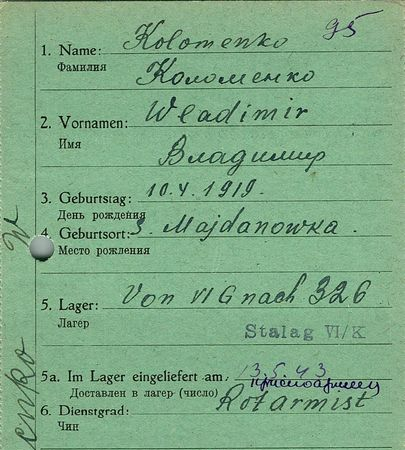 95
1. Name: Kolomenko
Фамилия Коломенко
2. Vornamen: Wladimir
Имя Владимир
3. Geburtstag: 10.4.1919.
День рождения
4. Geburtsort: S. Majdanowka.
Место рождения
5. Lager: Von VI G nach 326
Лагерь Stalag VI/K
5a. Im Lager eingeliefert am 13.5.43
Доставлен в лагерь (число) красноармеец
6. Dienstgrad: Rotarmist
Чин